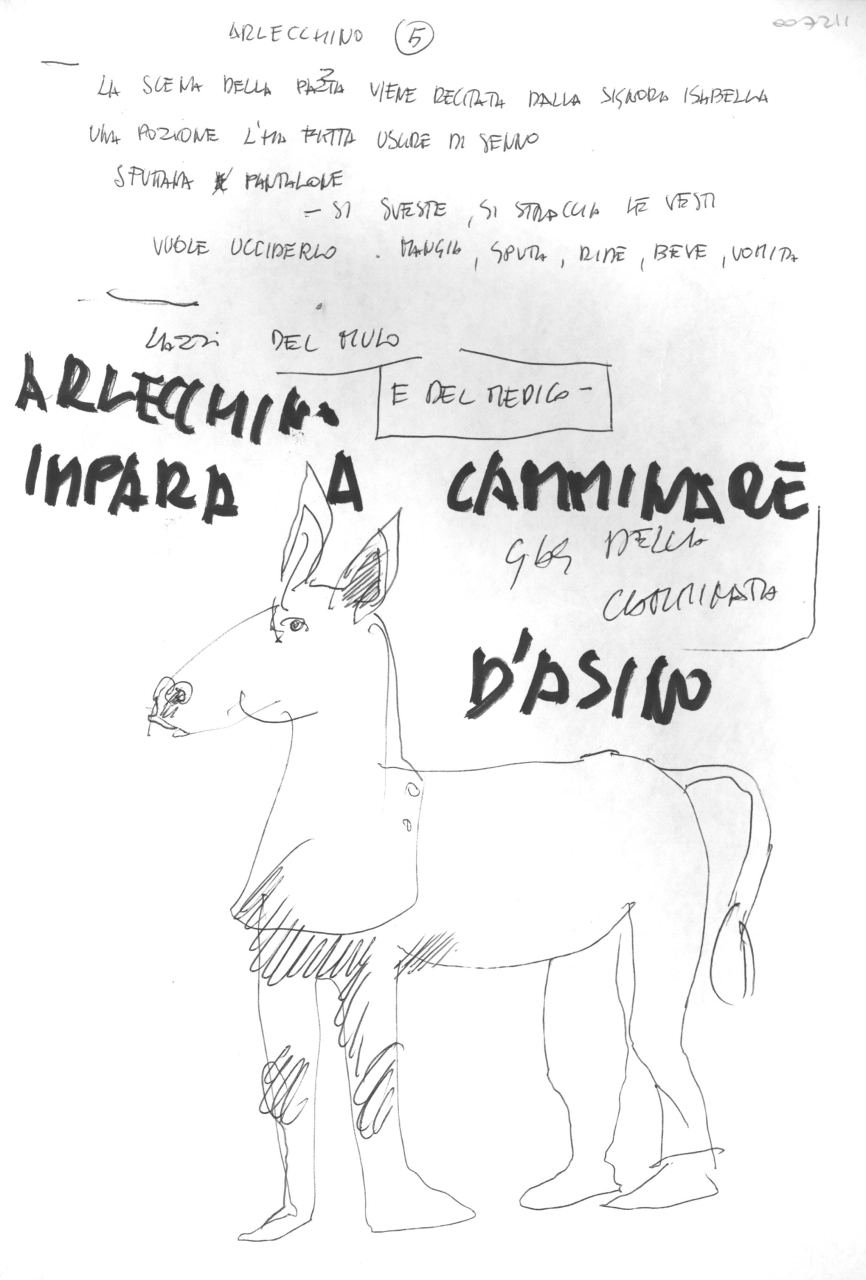 007211
ARLECCHINO 5
LA SCENA DELLA PAZZIA VIENE RECITATA DALLA SIGNORA ISABELLA
UNA POZIONE L'HA FATTA USCIRE DI SENNO
SPUTTANA PANTALONE
- SI SVESTE, SI STRACCIA LE VESTI
VUOLE UCCIDERLO. MANGIA, SPUTA, RIDE, BEVE, VOMITA
LAZZI DEL MULO
E DEL MEDICO -
ARLECCHINO
IMPARA A CAMMINARE
GAG DELLA
CAMMINATA
D'ASINO